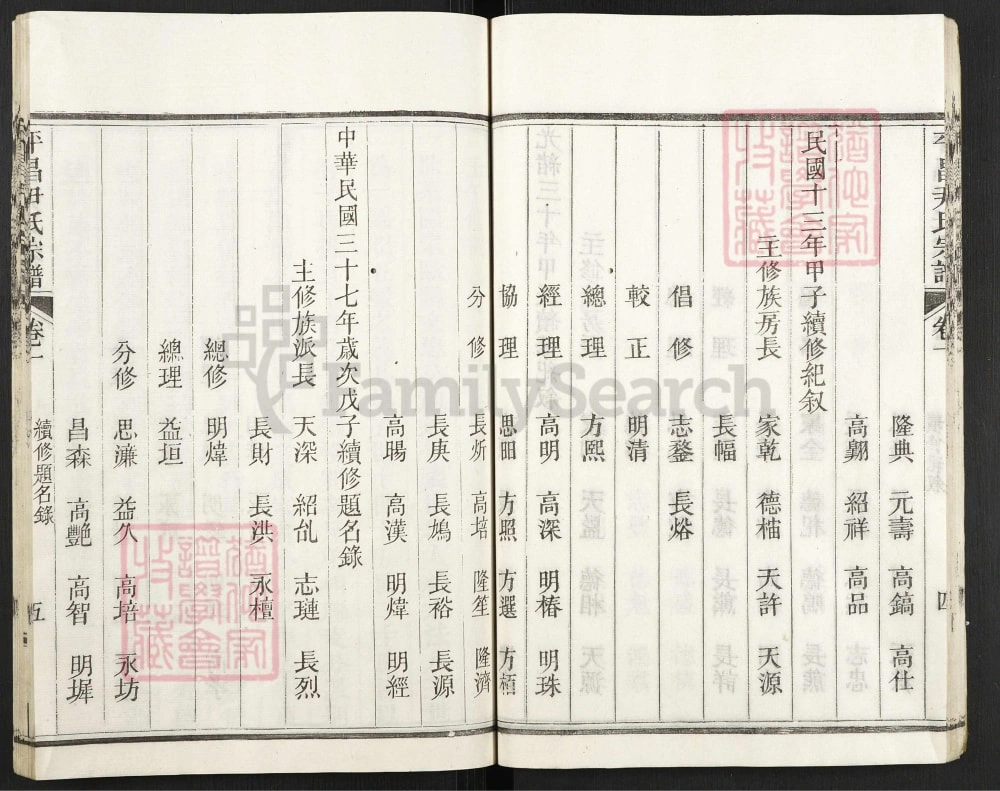 平昌尹氏宗譜 卷一 四
隆典 元壽 高鎬 高仕
高翾 紹祥 高品
民國十三年甲子續修紀敘
主修族房長 家乾 德楠 天許 天源
長幅
倡修 志鍪 長熔
較正 明清
總理 方熙
經理 高明 高深 明椿 明珠
協理 思田 方照 方選 方栢
分修 長炘 高培 隆笙 隆濟
長庚 長鳩 長裕 長源
高暘 高漢 明煒 明經
中華民國三十七年歲次戊子續修題名錄
主修族派長 天深 紹訄 志璉 長烈
長財 長洪 永檀
總修 明煒
總理 益垣
分修 思濂 益久 高培 永坊
昌森 高艷 高智 明墀
平昌尹氏宗譜 卷一 續修題名錄 五
FamilySearch